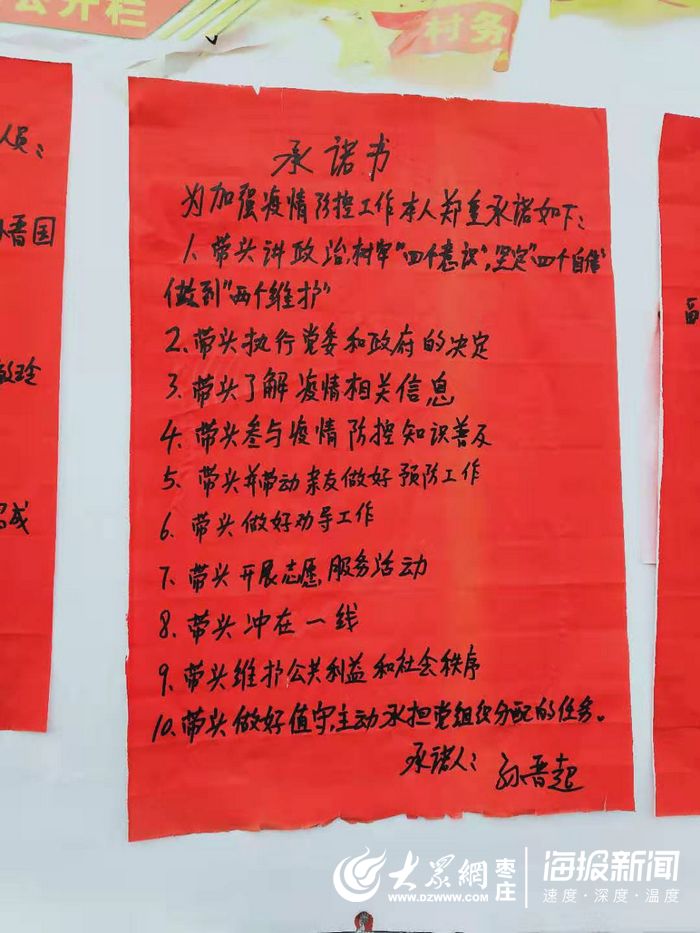 公开栏
村务
人员：
晋国
成
承诺书
为加强疫情防控工作本人郑重承诺如下：
1、带头讲政治，树牢"四个意识"，坚定"四个自信"
做到"两个维护"
2、带头执行党委和政府的决定
3、带头了解疫情相关信息
4、带头参与疫情防控知识普及
5、带头并带动亲友做好预防工作
6、带头做好劝导工作
7、带头开展志愿服务活动
8、带头冲在一线
9、带头维护公共利益和社会秩序
10、带头做好值守，主动承担党组织分配的任务。
承诺人：孙晋起
大众網 枣庄
www.dzwww.com
海报新闻
速度·深度·温度